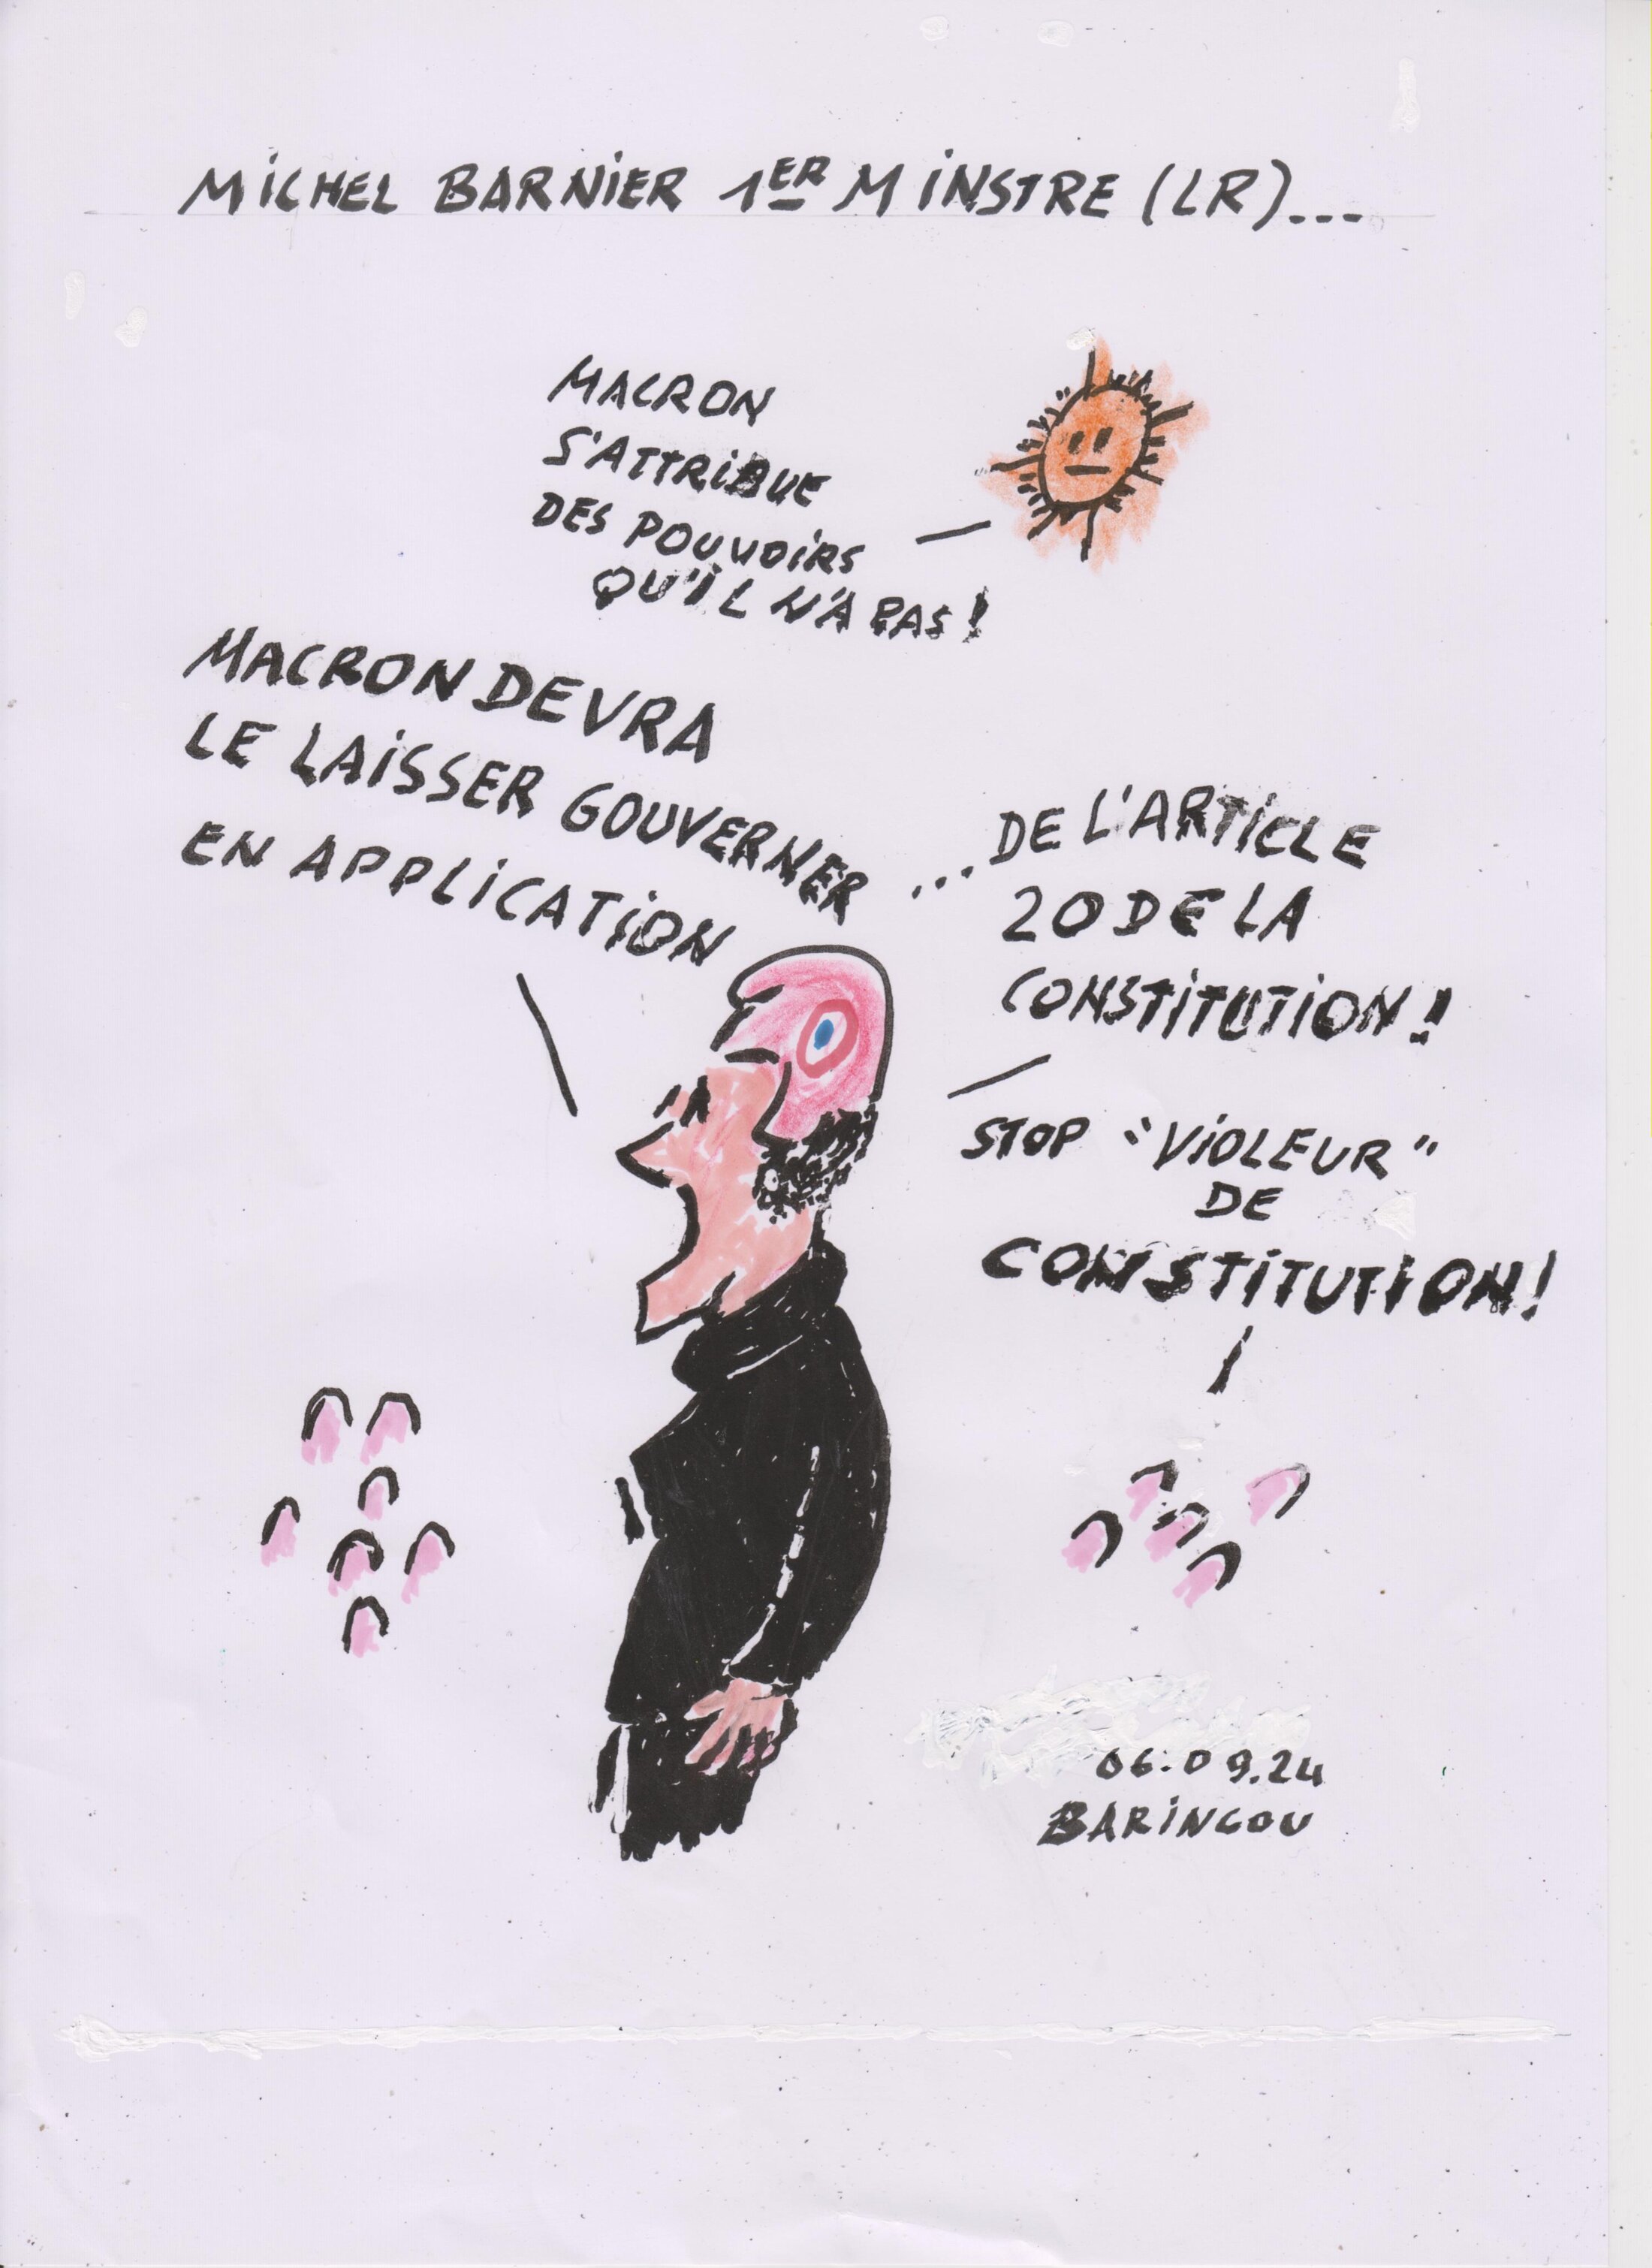 MICHEL BARNIER 1ER MINSTRE (LR)...
MACRON
S'ATTRIBUE
DES POUVOIRS
QU'IL N'A PAS !
MACRON DEVRA
LE LAISSER GOUVERNER
EN APPLICATION
... DE L'ARTICLE
20 DE LA
CONSTITUTION !
STOP "VIOLEUR"
DE
CONSTITUTION !
06.09.24
BARINGOU